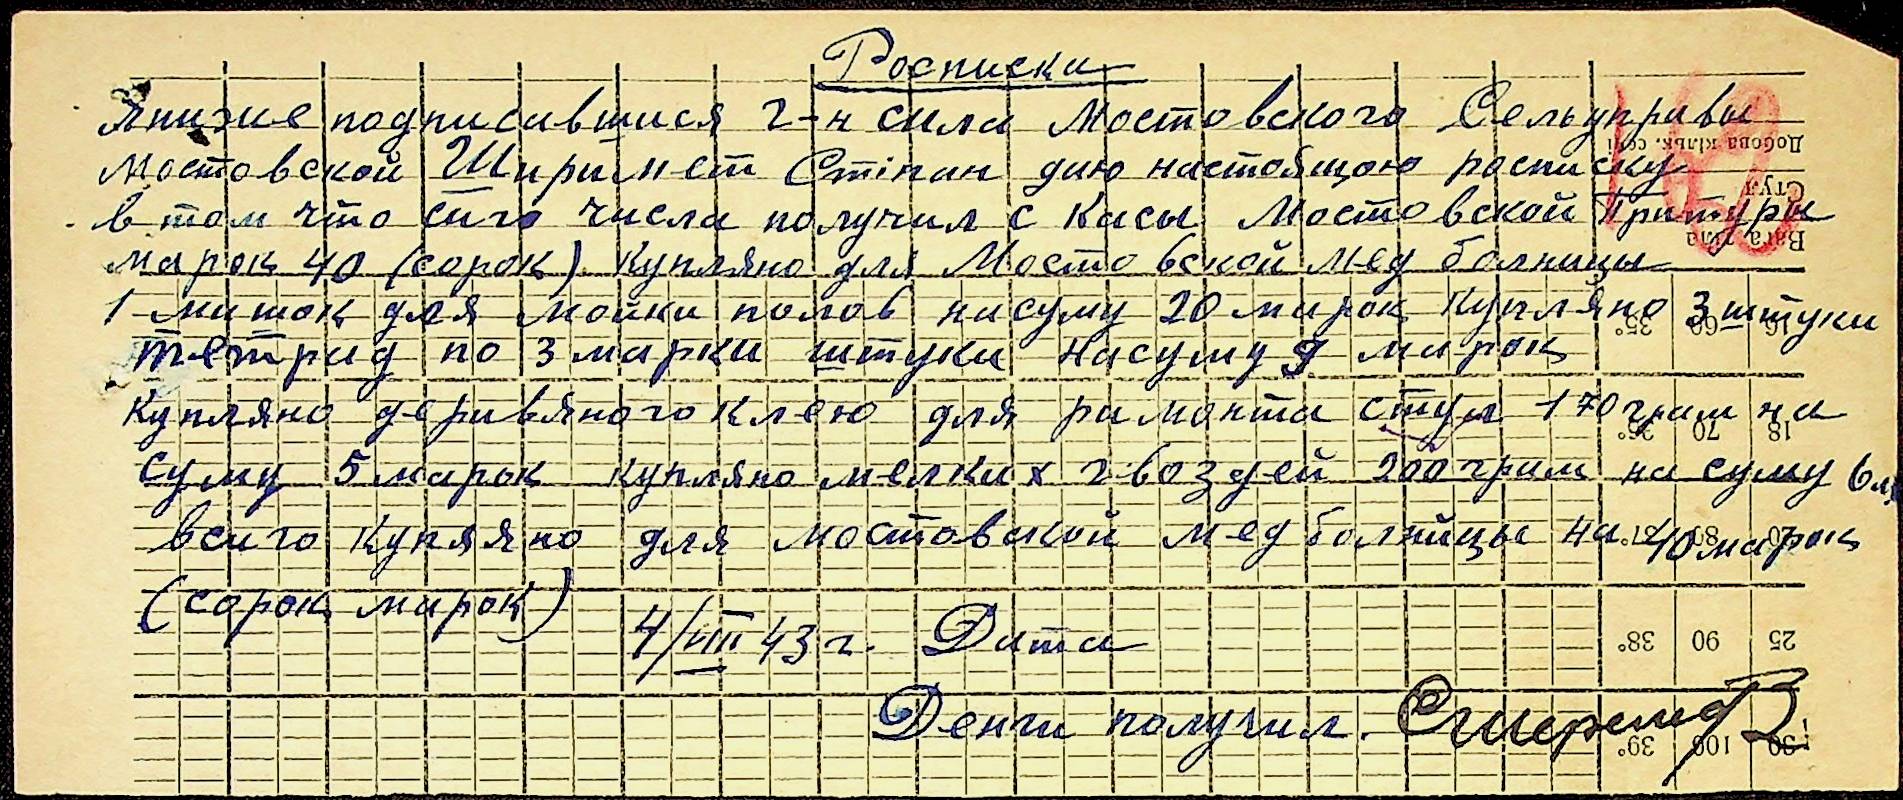 Росписка
Я ниже подписавшися г-н села Мостовского Сельуправы
Мостовской Ширмет Стіпан даю настоящою расписку
в том что сиго числа получил с касы Мостовской
марок 40 (сорок). Купляно для Мостовской мед болницы
1 - мишок для мойки полов насуму 20 марок Купляно 3 штуки
тетрад по 3 марки штука насуму 9 марок
Купляно деривяного клею для рамонта стул 170 грам на
суму 5 марок купляно мелких гвоздей 200 грам на суму 6 м
всиго купляно для мостовской мед болницы на 40 марок
(сорок марок)
4/VIII 43 г. Дата
Денги получил.
Добова кільк. сечі
Стул
Вага тіла
35° 60 16
36° 70 18
37° 80 20
38° 90 25
39° 100 30